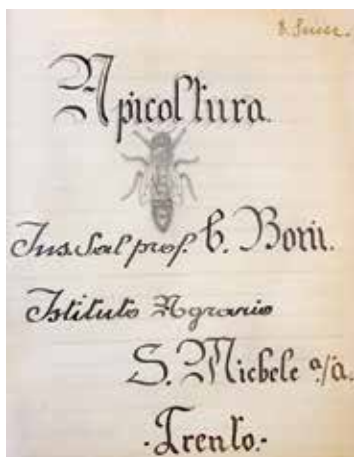 Apicoltura.
Ins. dal prof. Boni.
Istituto Agrario
S. Michele a/a.
·Trento.·